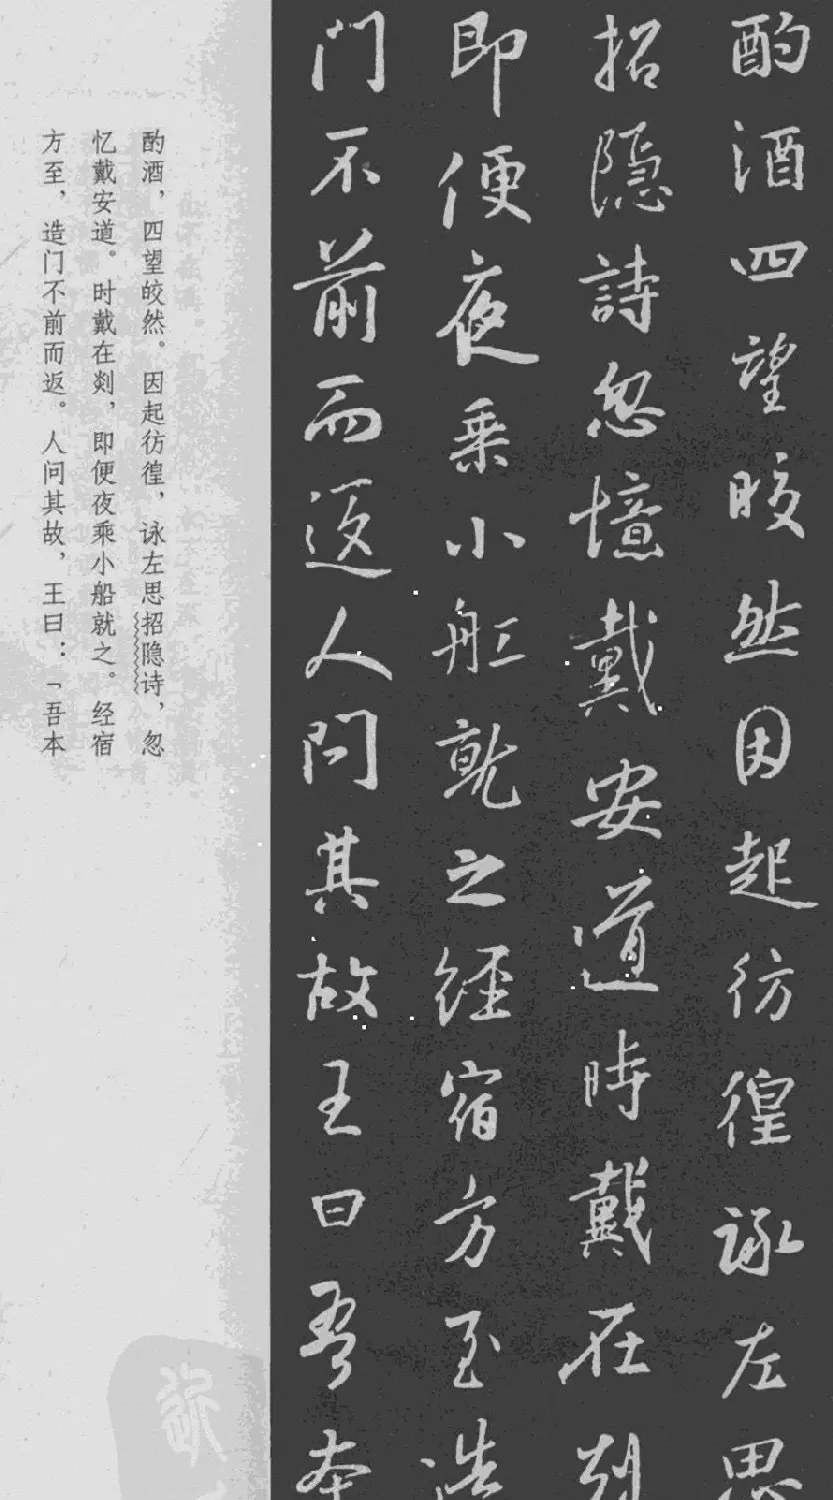 酌酒四望晈然因起彷徨詠左思
招隐詩忽憶戴安道時戴在剡
即便夜乗小舡就之経宿方至造
门不前而返人问其故王曰吾本
酌酒，四望皎然。因起彷徨，咏左思招隐诗，忽
忆戴安道。时戴在剡，即便夜乘小船就之。经宿
方至，造门不前而返。人问其故，王曰：「吾本